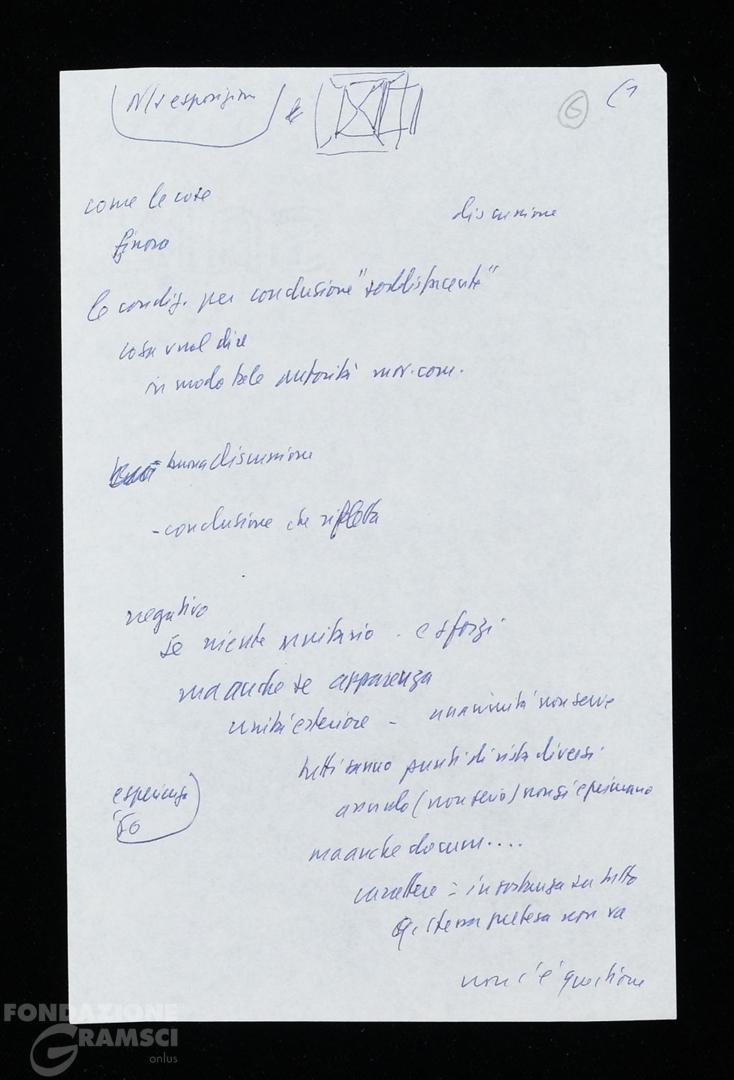 N/s esposizione
6
come le cose
discussione
finora
le condiz. per conclusione "soddisfacente"
cosa vuol dire
in modo tale autorità mov. com.
buona discussione
- conclusione che rifletta
negativo
se niente unitario. e sforzi
ma anche se apparenza
unità esteriore - unanimità non serve
tutti sanno punti di vista diversi
assurdo (non serio) non si esprimano
esperienza
60
ma anche docum....
carattere = in sostanza su tutto
stessa pretesa non va
non c'è questione
FONDAZIONE
GRAMSCI
onlus